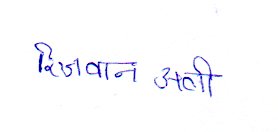 रिजवान अली